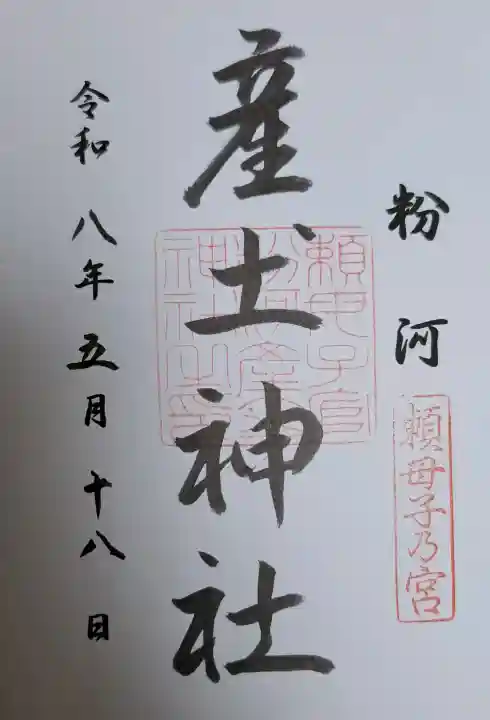 粉河
頼母子乃宮
産土神社
令和八年五月十八日